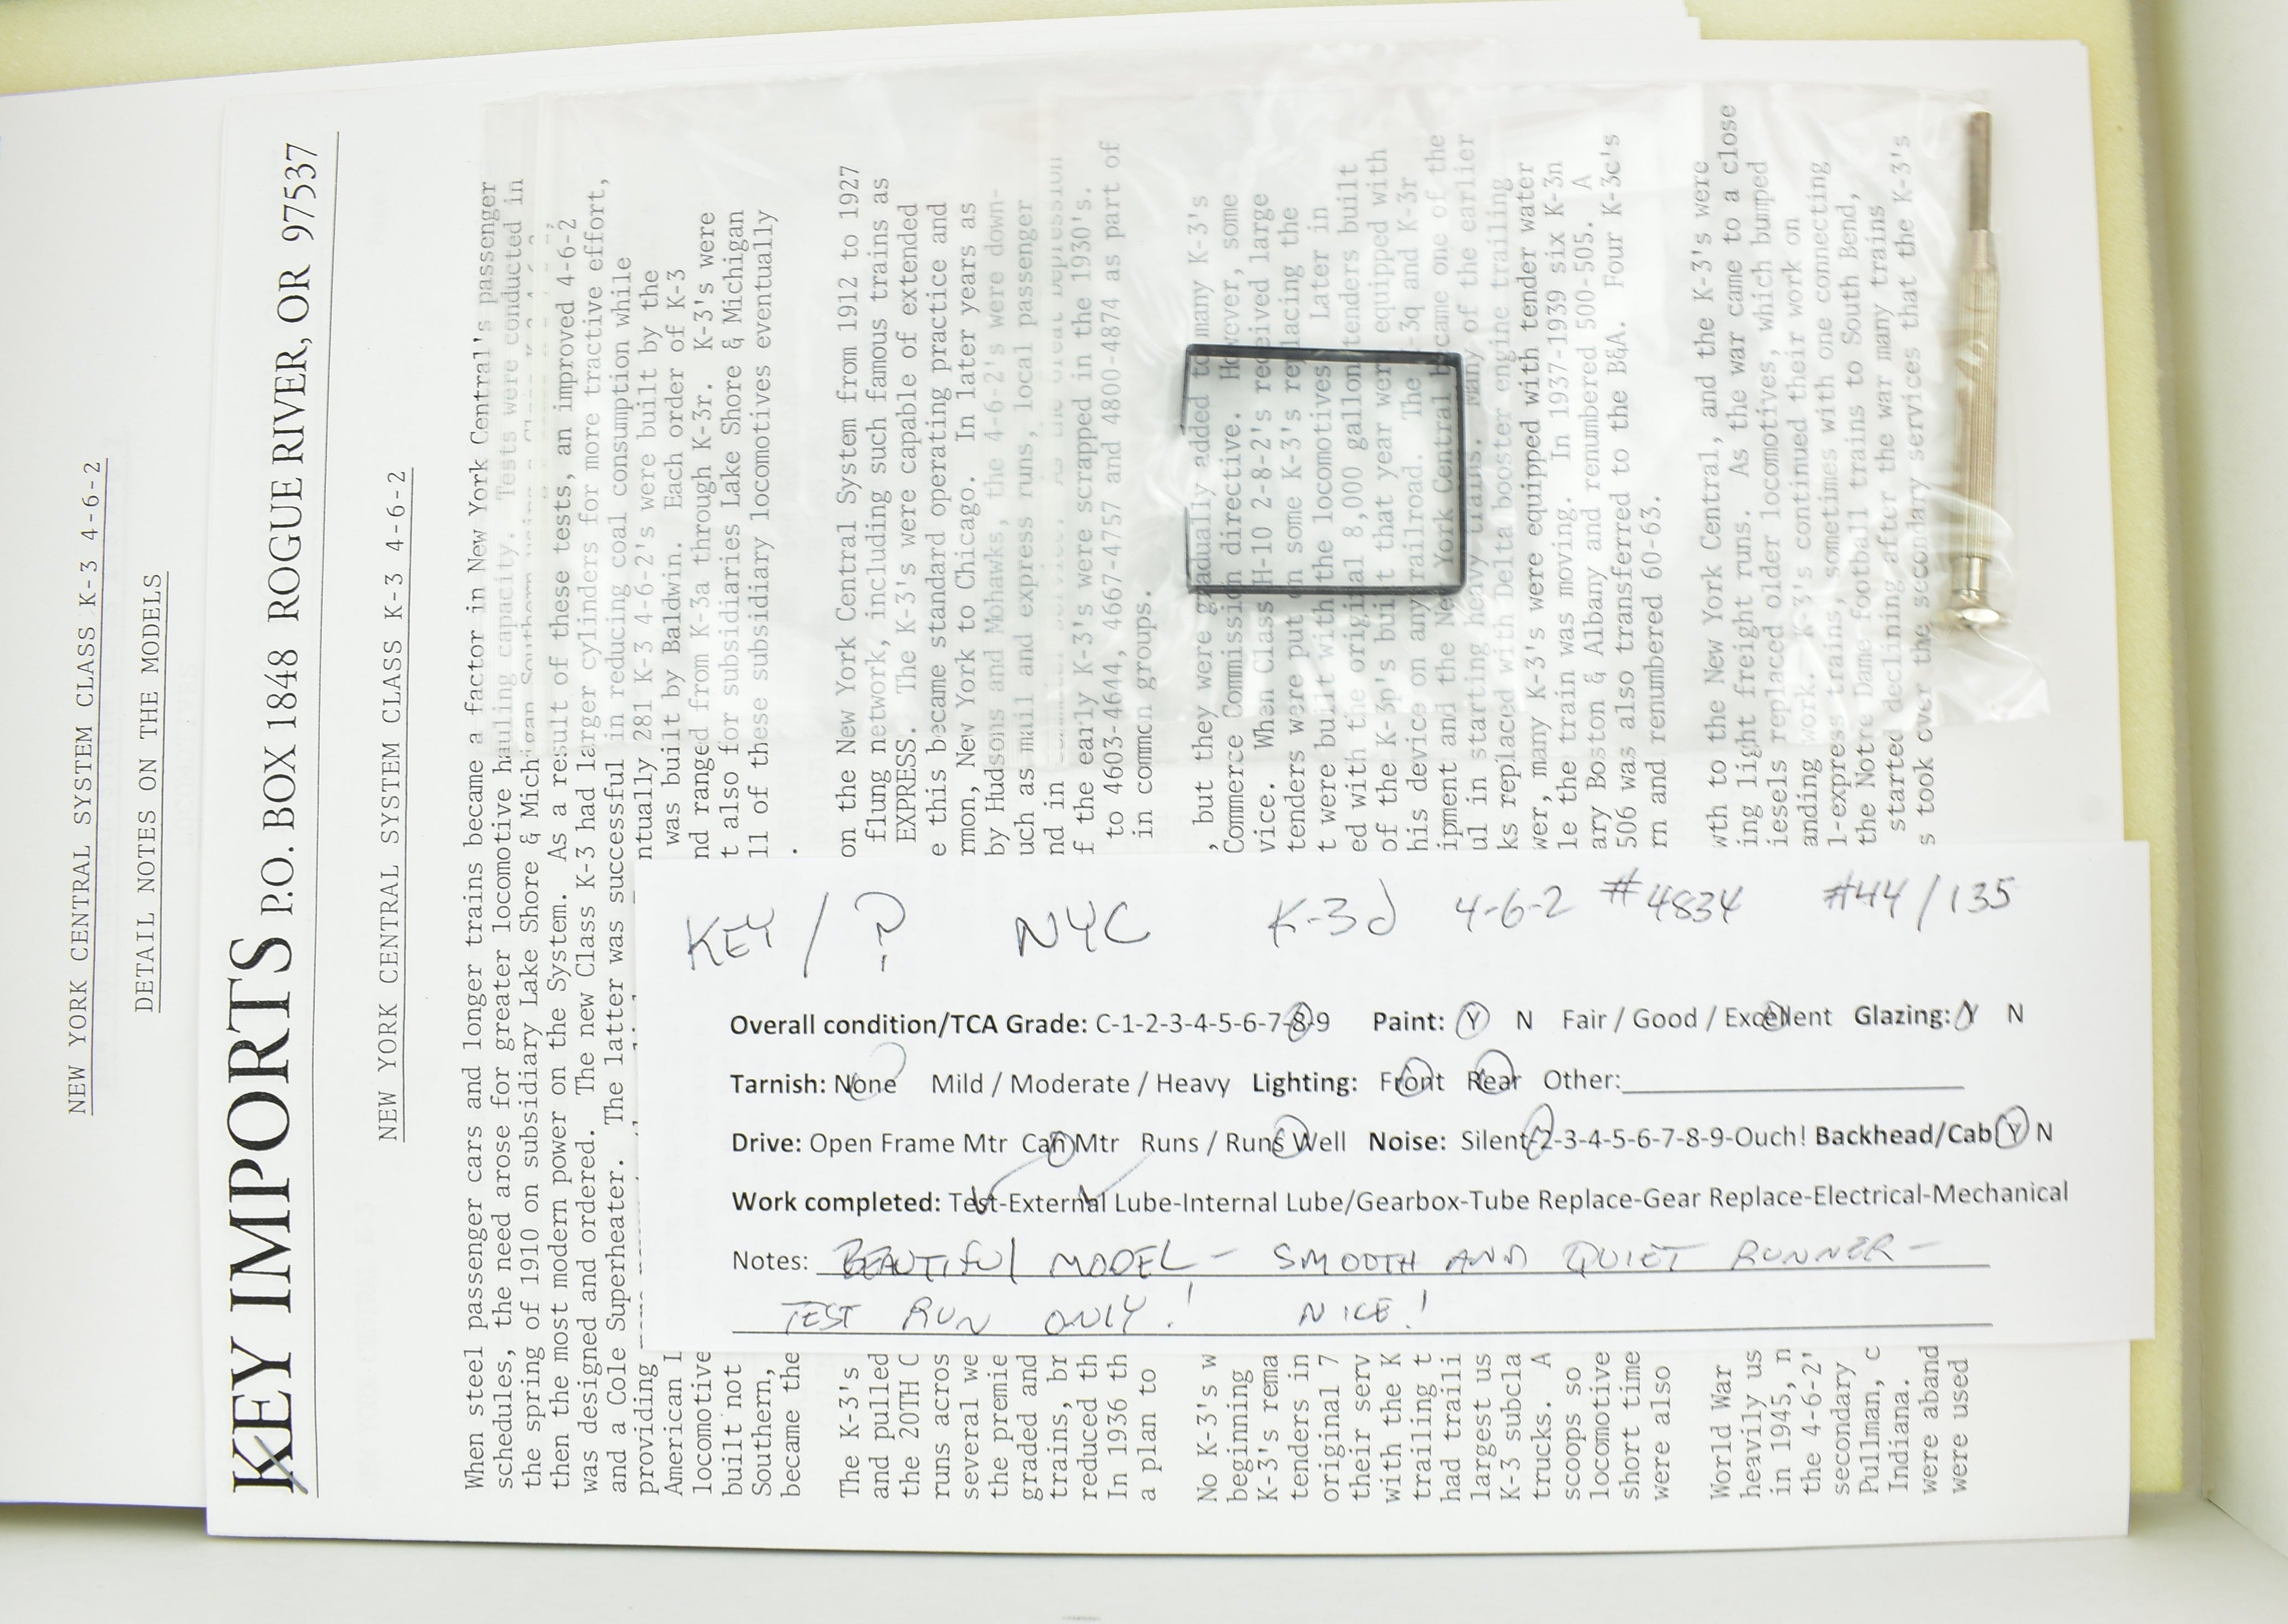 NEW YORK CENTRAL SYSTEM CLASS K-3 4-6-2
DETAIL NOTES ON THE MODELS
KEY IMPORTS P.O. BOX 1848 ROGUE RIVER, OR 97537
NEW YORK CENTRAL SYSTEM CLASS K-3 4-6-2
When steel passenger cars and longer trains became a factor in New York Central's passenger
schedules, the need arose for greater locomotive hauling capacity. Tests were conducted in
the spring of 1910 on subsidiary Lake Shore & Michigan Southern
then the most modern power on the System. As a result of these tests, an improved 4-6-2
was designed and ordered. The new Class K-3 had larger cylinders for more tractive effort,
and a Cole Superheater. The latter was successful in reducing coal consumption while
providing ntually 281 K-3 4-6-2's were built by the
American L was built by Baldwin. Each order of K-3
locomotive nd ranged from K-3a through K-3r. K-3's were
built not t also for subsidiaries Lake Shore & Michigan
Southern, ll of these subsidiary locomotives eventually
became the .
The K-3's on the New York Central System from 1912 to 1927
and pulled flung network, including such famous trains as
the 20TH C EXPRESS. The K-3's were capable of extended
runs acros e this became standard operating practice and
several we rmon, New York to Chicago. In later years as
the premie by Hudsons and Mohawks, the 4-6-2's were down-
graded and uch as mail and express runs, local passenger
trains, br nd in As the Great Depression
reduced th f the early K-3's were scrapped in the 1930's.
In 1936 th to 4603-4644, 4667-4757 and 4800-4874 as part of
a plan to in common groups.
No K-3's w , but they were gradually added to many K-3's
beginning Commerce Commission directive. However, some
K-3's rema vice. When Class H-10 2-8-2's received large
tenders in tenders were put on some K-3's replacing the
original 7 t were built with the locomotives Later in
their serv ed with the original 8,000 gallon tenders built
with the K of the K-3p's built that year were equipped with
trailing t his device on any railroad. The -3q and K-3r
had traili ipment and the New York Central became one of the
largest us ul in starting heavy trains. Many of the earlier
K-3 subcla ks replaced with Delta booster engine trailing
trucks. A wer, many K-3's were equipped with tender water
scoops so le the train was moving. In 1937-1939 six K-3n
locomotive ary Boston & Albany and renumbered 500-505. A
short time 506 was also transferred to the B&A. Four K-3c's
were also rn and renumbered 60-63.
World War wth to the New York Central, and the K-3's were
heavily us ing light freight runs. As the war came to a close
in 1945, n iesels replaced older locomotives, which bumped
the 4-6-2' anding work. K-3's continued their work on
secondary l-express trains, sometimes with one connecting
Pullman, c the Notre Dame football trains to South Bend,
Indiana. started declining after the war many trains
were aband s took over the secondary services that the K-3's
were used
KEY / ? NYC K-3d 4-6-2 #4834 #44/135
Overall condition/TCA Grade: C-1-2-3-4-5-6-7-8-9 Paint: Y N Fair / Good / Excellent Glazing: Y N
Tarnish: None Mild / Moderate / Heavy Lighting: Front Rear Other:
Drive: Open Frame Mtr Can Mtr Runs / Runs Well Noise: Silent-2-3-4-5-6-7-8-9-Ouch! Backhead/Cab Y N
Work completed: Test-External Lube-Internal Lube/Gearbox-Tube Replace-Gear Replace-Electrical-Mechanical
Notes: BEAUTIFUL MODEL - SMOOTH AND QUIET RUNNER -
TEST RUN ONLY! NICE!